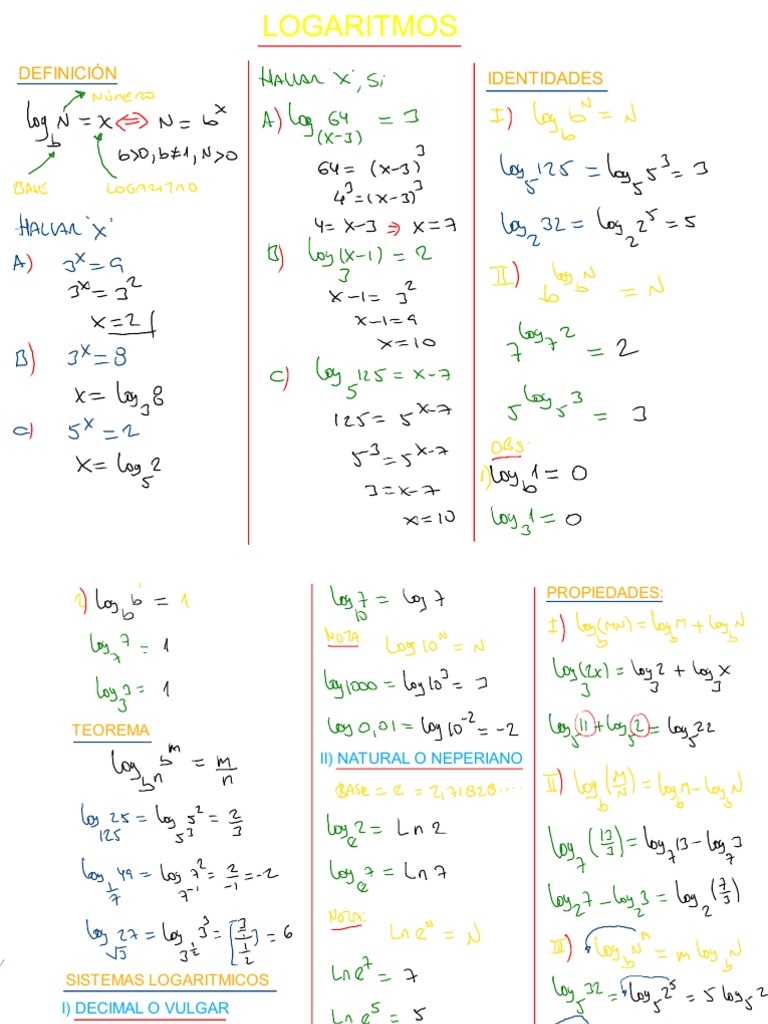 LOGARITMOS
DEFINICIÓN
NÚMERO
log_b N = x ⇔ N = b^x
b>0, b≠1, N>0
BASE LOGARITMO
HALLAR "X"
A) 3^x = 9
3^x = 3^2
x = 2
B) 3^x = 8
x = log_3 8
C) 5^x = 2
x = log_5 2
HALLAR "X", Si
A) log_(x-3) 64 = 3
64 = (x-3)^3
4^3 = (x-3)^3
4 = x-3 ⇒ x = 7
B) log_3 (x-1) = 2
x-1 = 3^2
x-1 = 9
x = 10
C) log_5 125 = x-7
125 = 5^(x-7)
5^3 = 5^(x-7)
3 = x-7
x = 10
IDENTIDADES
I) log_b b^N = N
log_5 125 = log_5 5^3 = 3
log_2 32 = log_2 2^5 = 5
II) b^(log_b N) = N
7^(log_7 2) = 2
5^(log_5 3) = 3
OBS:
1) log_b 1 = 0
log_3 1 = 0
2) log_b b = 1
log_7 7 = 1
log_3 3 = 1
TEOREMA
log_(b^n) b^m = m/n
log_125 25 = log_(5^3) 5^2 = 2/3
log_(1/7) 49 = log_(7^-1) 7^2 = 2/-1 = -2
log_√3 27 = log_(3^(1/2)) 3^3 = [3/1 / 1/2] = 6
SISTEMAS LOGARITMICOS
I) DECIMAL O VULGAR
log_10 7 = log 7
NOTA: log 10^N = N
log 1000 = log 10^3 = 3
log 0,01 = log 10^-2 = -2
II) NATURAL O NEPERIANO
BASE = e = 2,71828.....
log_e 2 = Ln 2
log_e 7 = Ln 7
NOTA:
Ln e^N = N
Ln e^7 = 7
Ln e^5 = 5
PROPIEDADES:
I) log_b (MN) = log_b M + log_b N
log_3 (2x) = log_3 2 + log_3 x
log_5 11 + log_5 2 = log_5 22
II) log_b (M/N) = log_b M - log_b N
log_7 (13/3) = log_7 13 - log_7 3
log_2 7 - log_2 3 = log_2 (7/3)
III) log_b N^m = m log_b N
log_5 32 = log_5 2^5 = 5 log_5 2